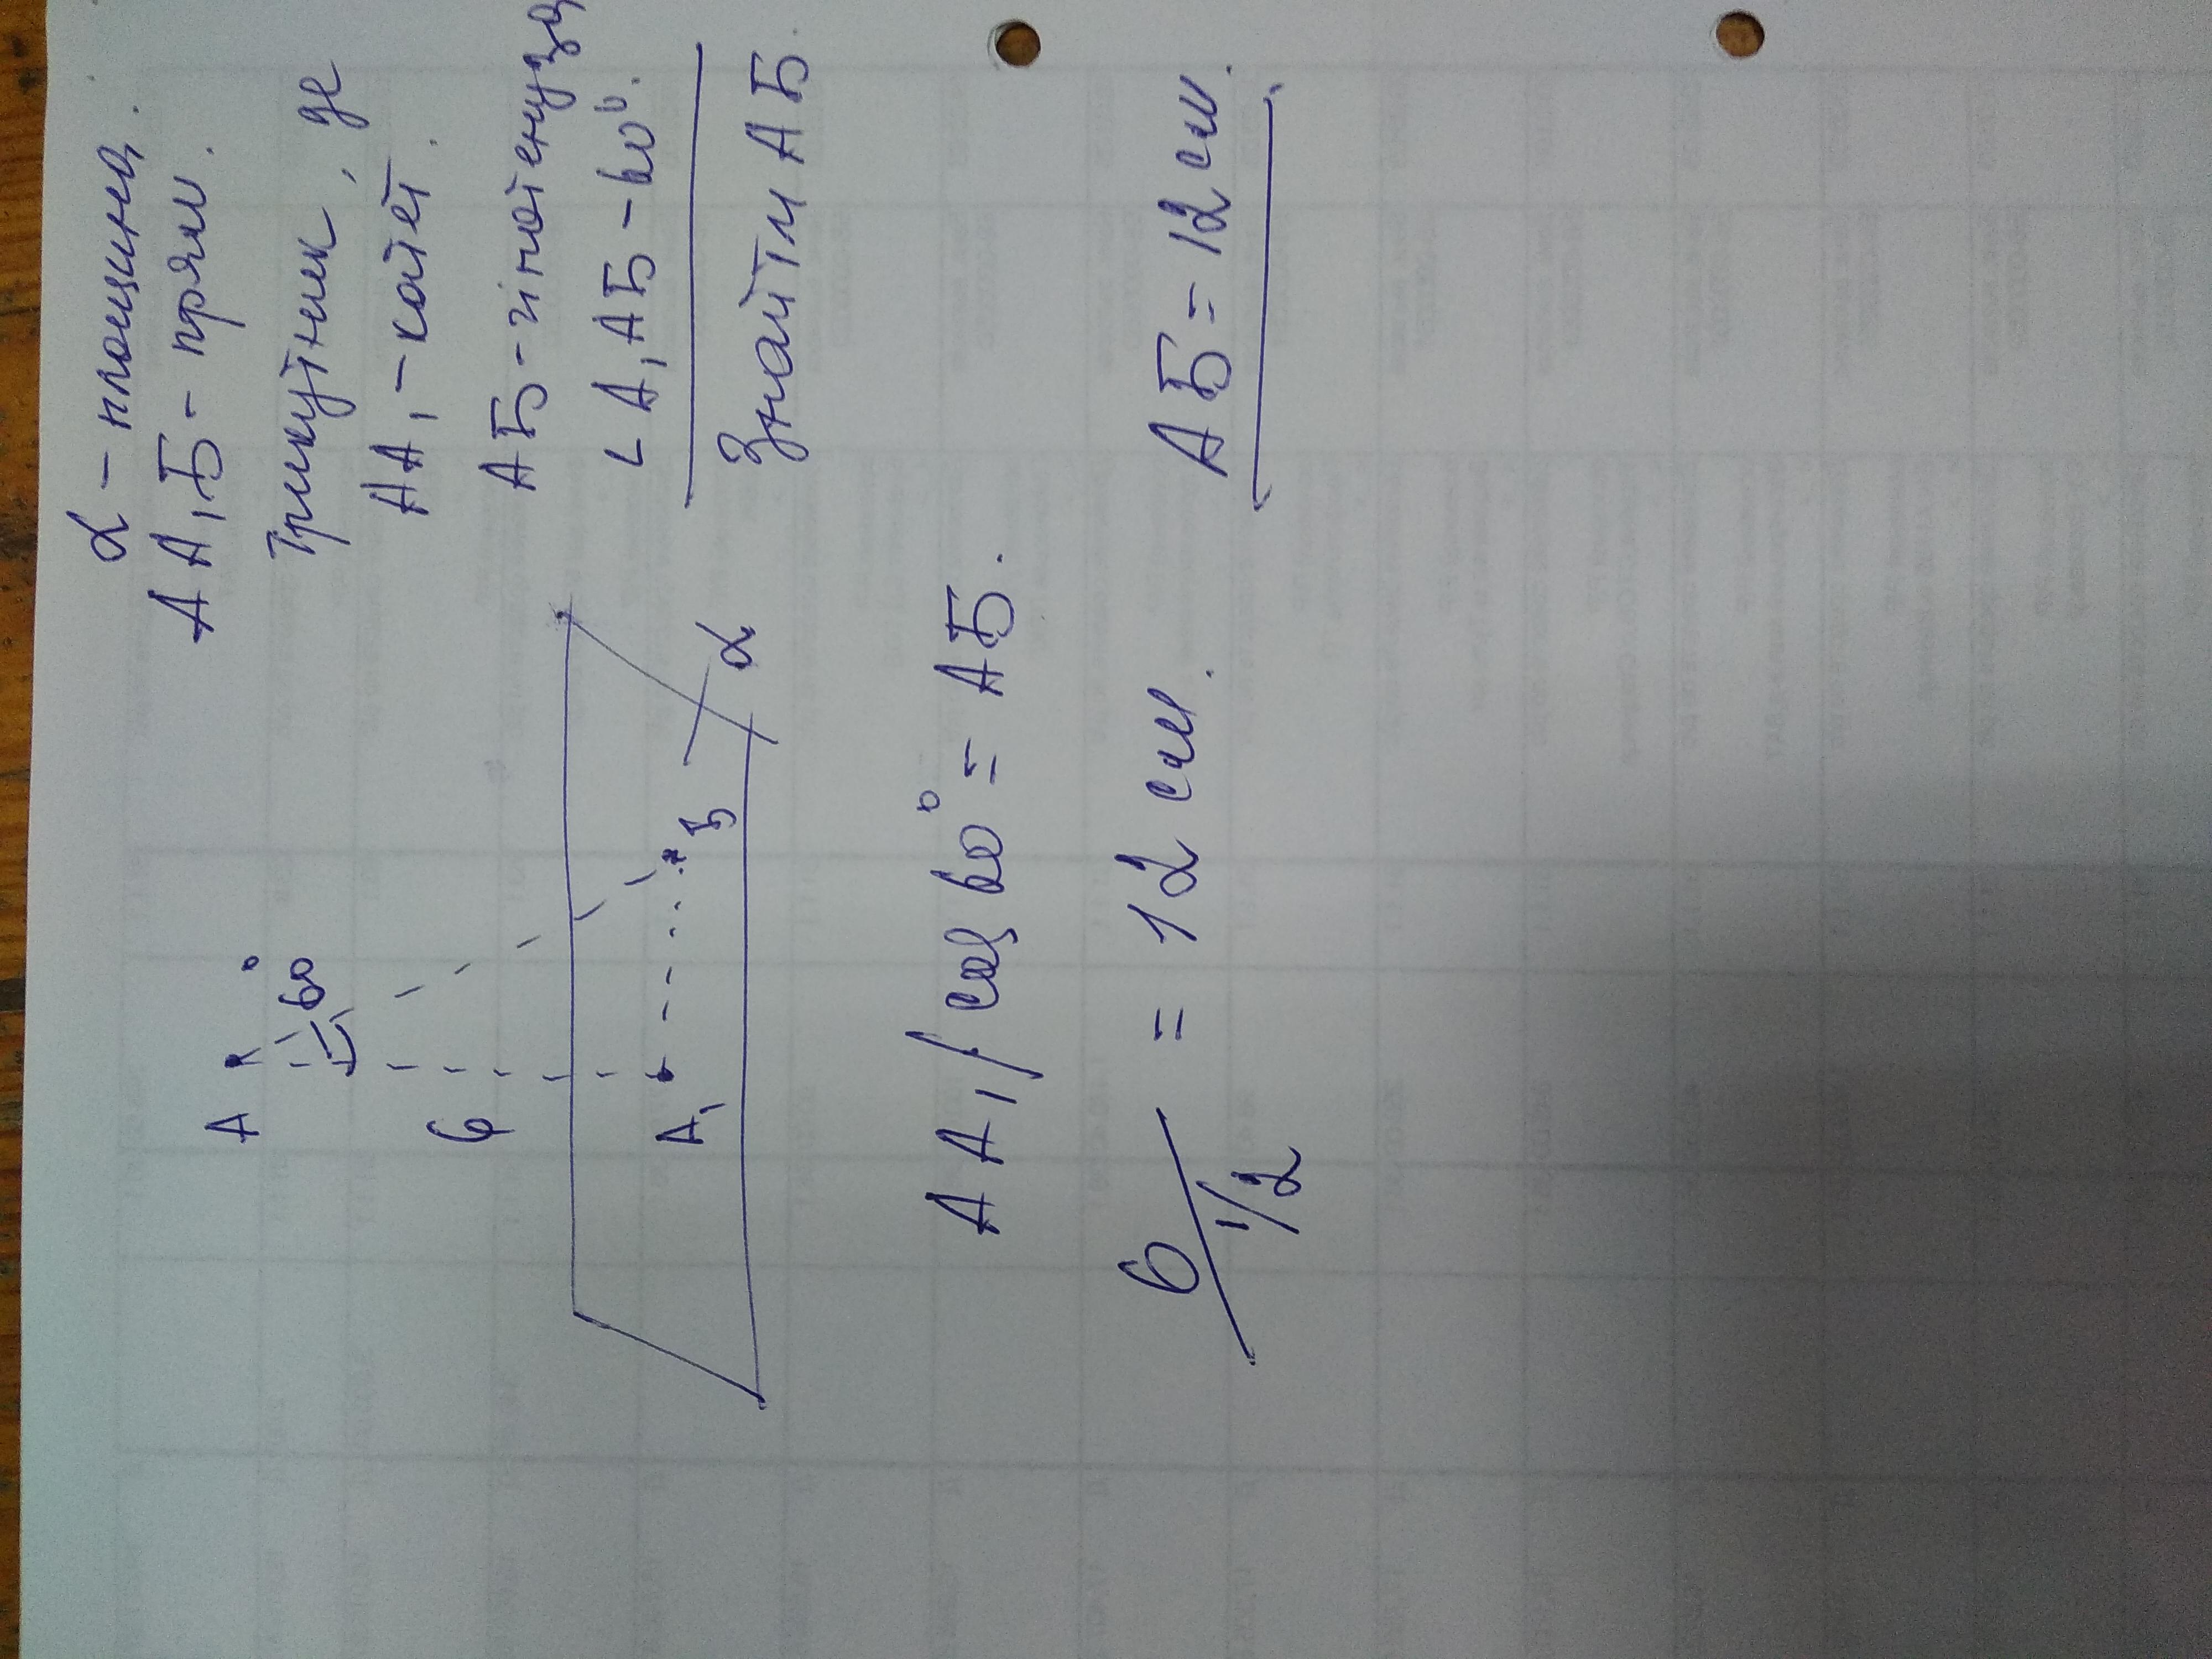 α - площина.
АА₁Б - прям.
Трикутник, де
АА₁ - катет.
АБ - гіпотенуза
∟А₁АБ - 60°.
Знайти АБ.
А
60°
6
А₁
Б
α
АА₁/cos 60° = АБ.
6/1/2 = 12 см.
АБ = 12 см.